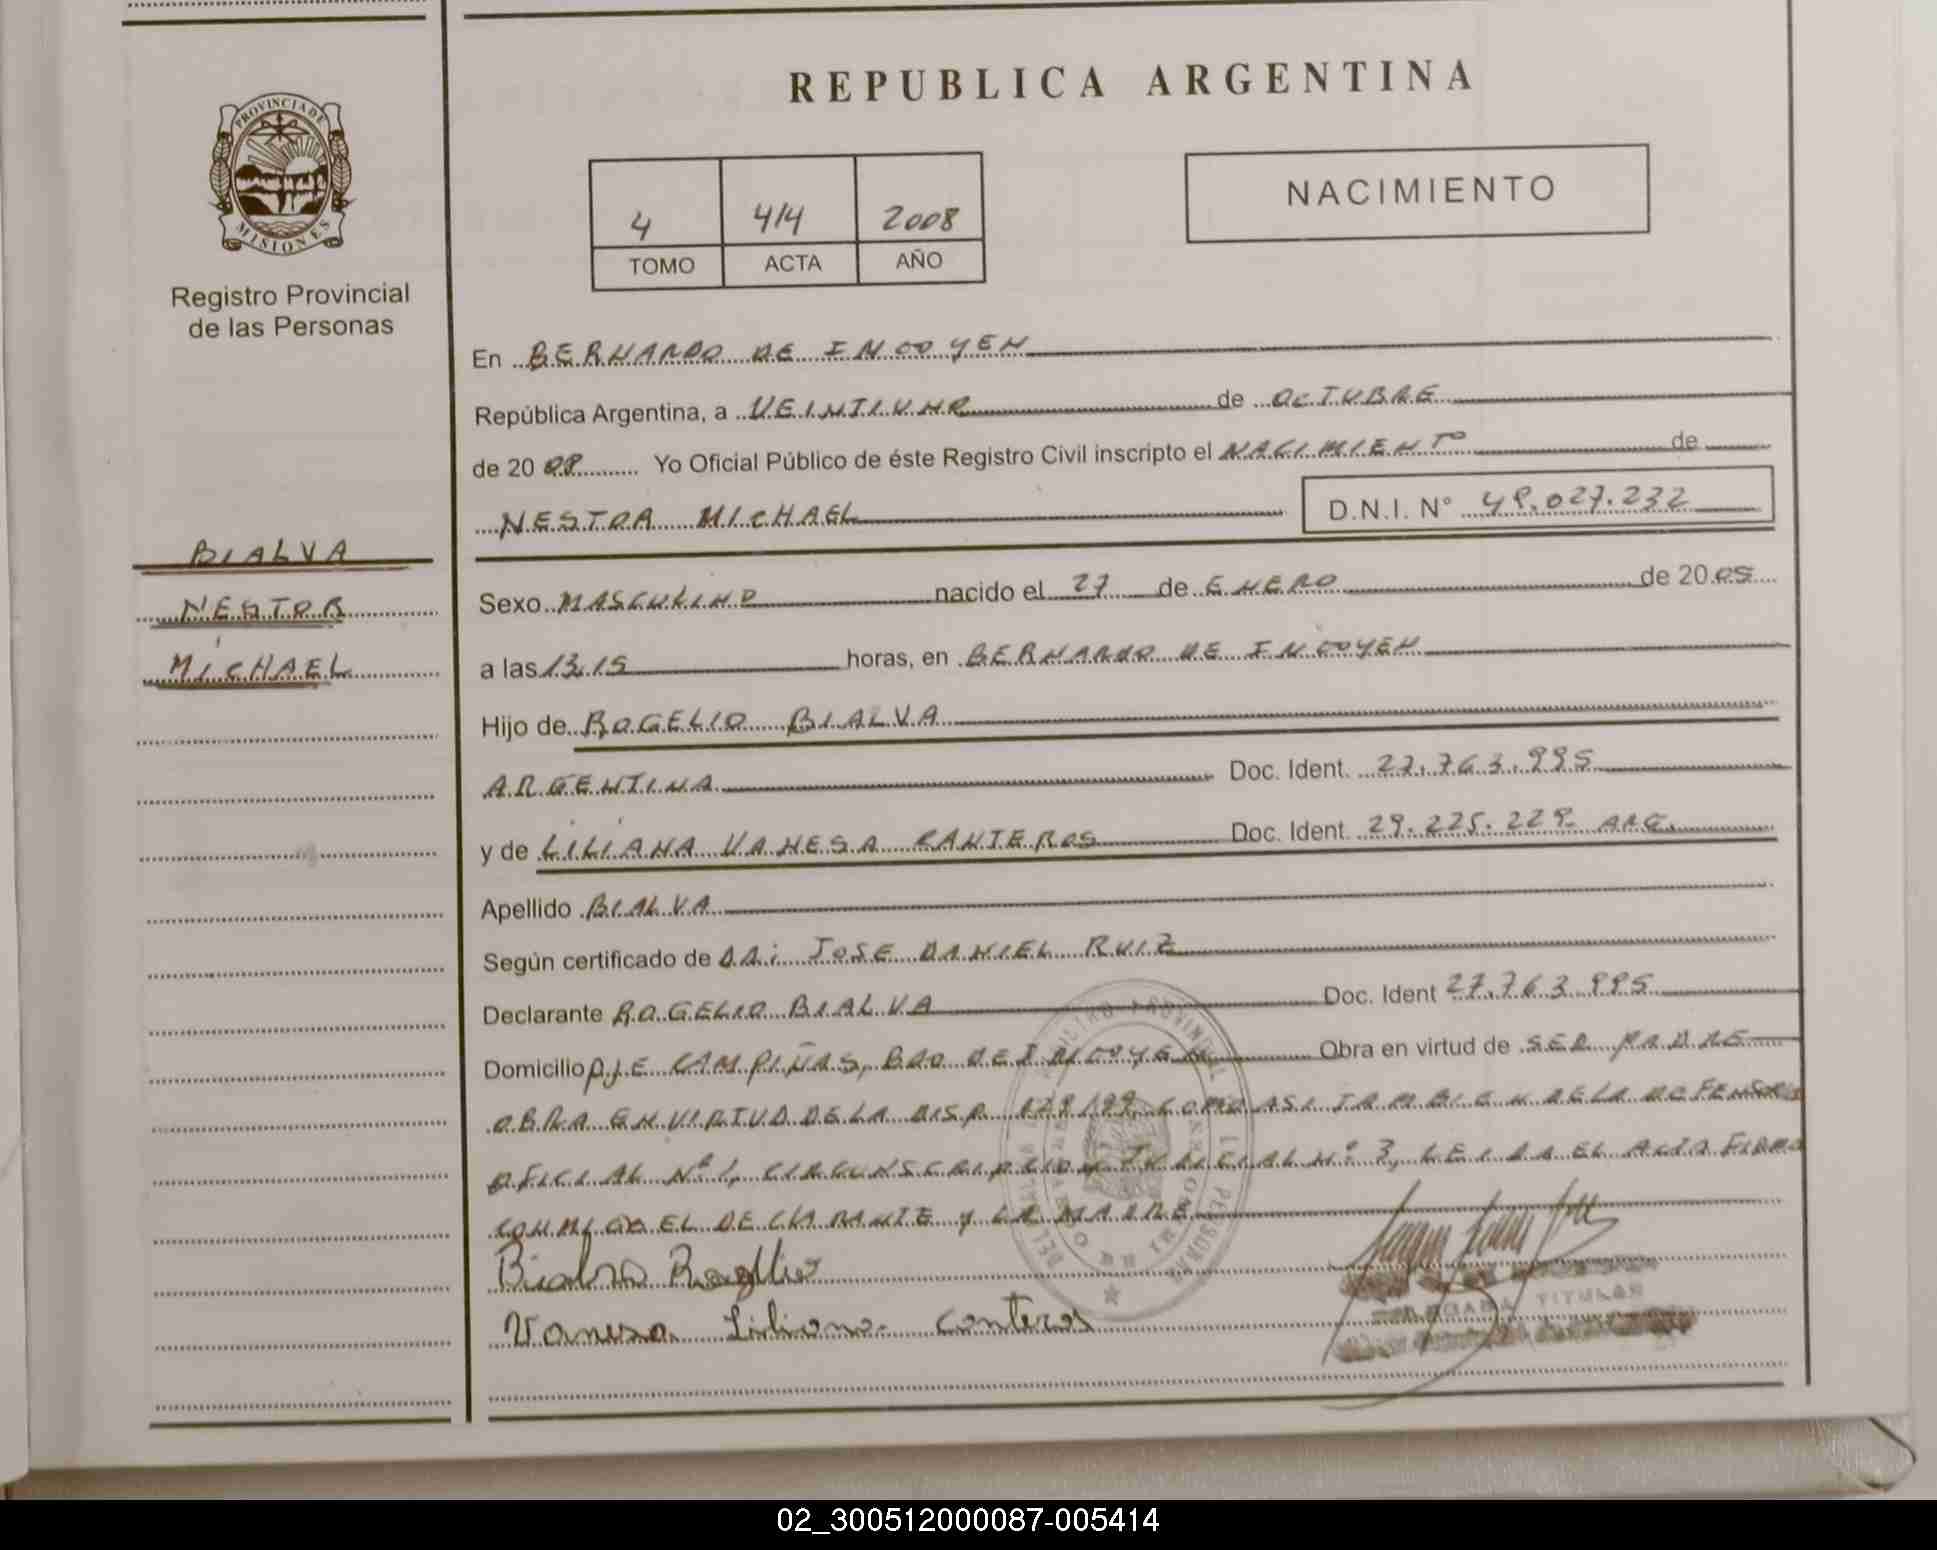 REPUBLICA ARGENTINA
PROVINCIA DE
MISIONES
Registro Provincial
de las Personas
4 414 2008
TOMO ACTA AÑO
NACIMIENTO
En BERNARDO DE IRIGOYEN
República Argentina, a VEINTIUNO de OCTUBRE
de 2008 Yo Oficial Público de éste Registro Civil inscripto el NACIMIENTO de
NESTOR MICHAEL D.N.I. N° 49.027.232
BIALVA
NESTOR
MICHAEL
Sexo MASCULINO nacido el 27 de ENERO de 2005
a las 13,15 horas, en BERNARDO DE IRIGOYEN
Hijo de ROGELIO BIALVA
ARGENTINA Doc. Ident. 27.763.995
y de LILIANA VANESA CANTEROS Doc. Ident. 29.225.229 ARG.
Apellido BIALVA
Según certificado de DR: JOSE DANIEL RUIZ
Declarante ROGELIO BIALVA Doc. Ident 27.763.995
Domicilio PJE CAMPIÑAS, BDO DE IRIGOYEN Obra en virtud de SER PADRE
OBRA EN VIRTUD DE LA DISP. COMO ASI TAMBIEN DE LA DEFENSORIA
OFICIAL N° 1, CIRCUNSCRIPCION JUDICIAL N° 3, LEIDA EL ACTA FIRMA
CONMIGO EL DECLARANTE Y LA MADRE
Bialva Rogelio
Vanesa Liliana Canteros
TITULAR
02_300512000087-005414